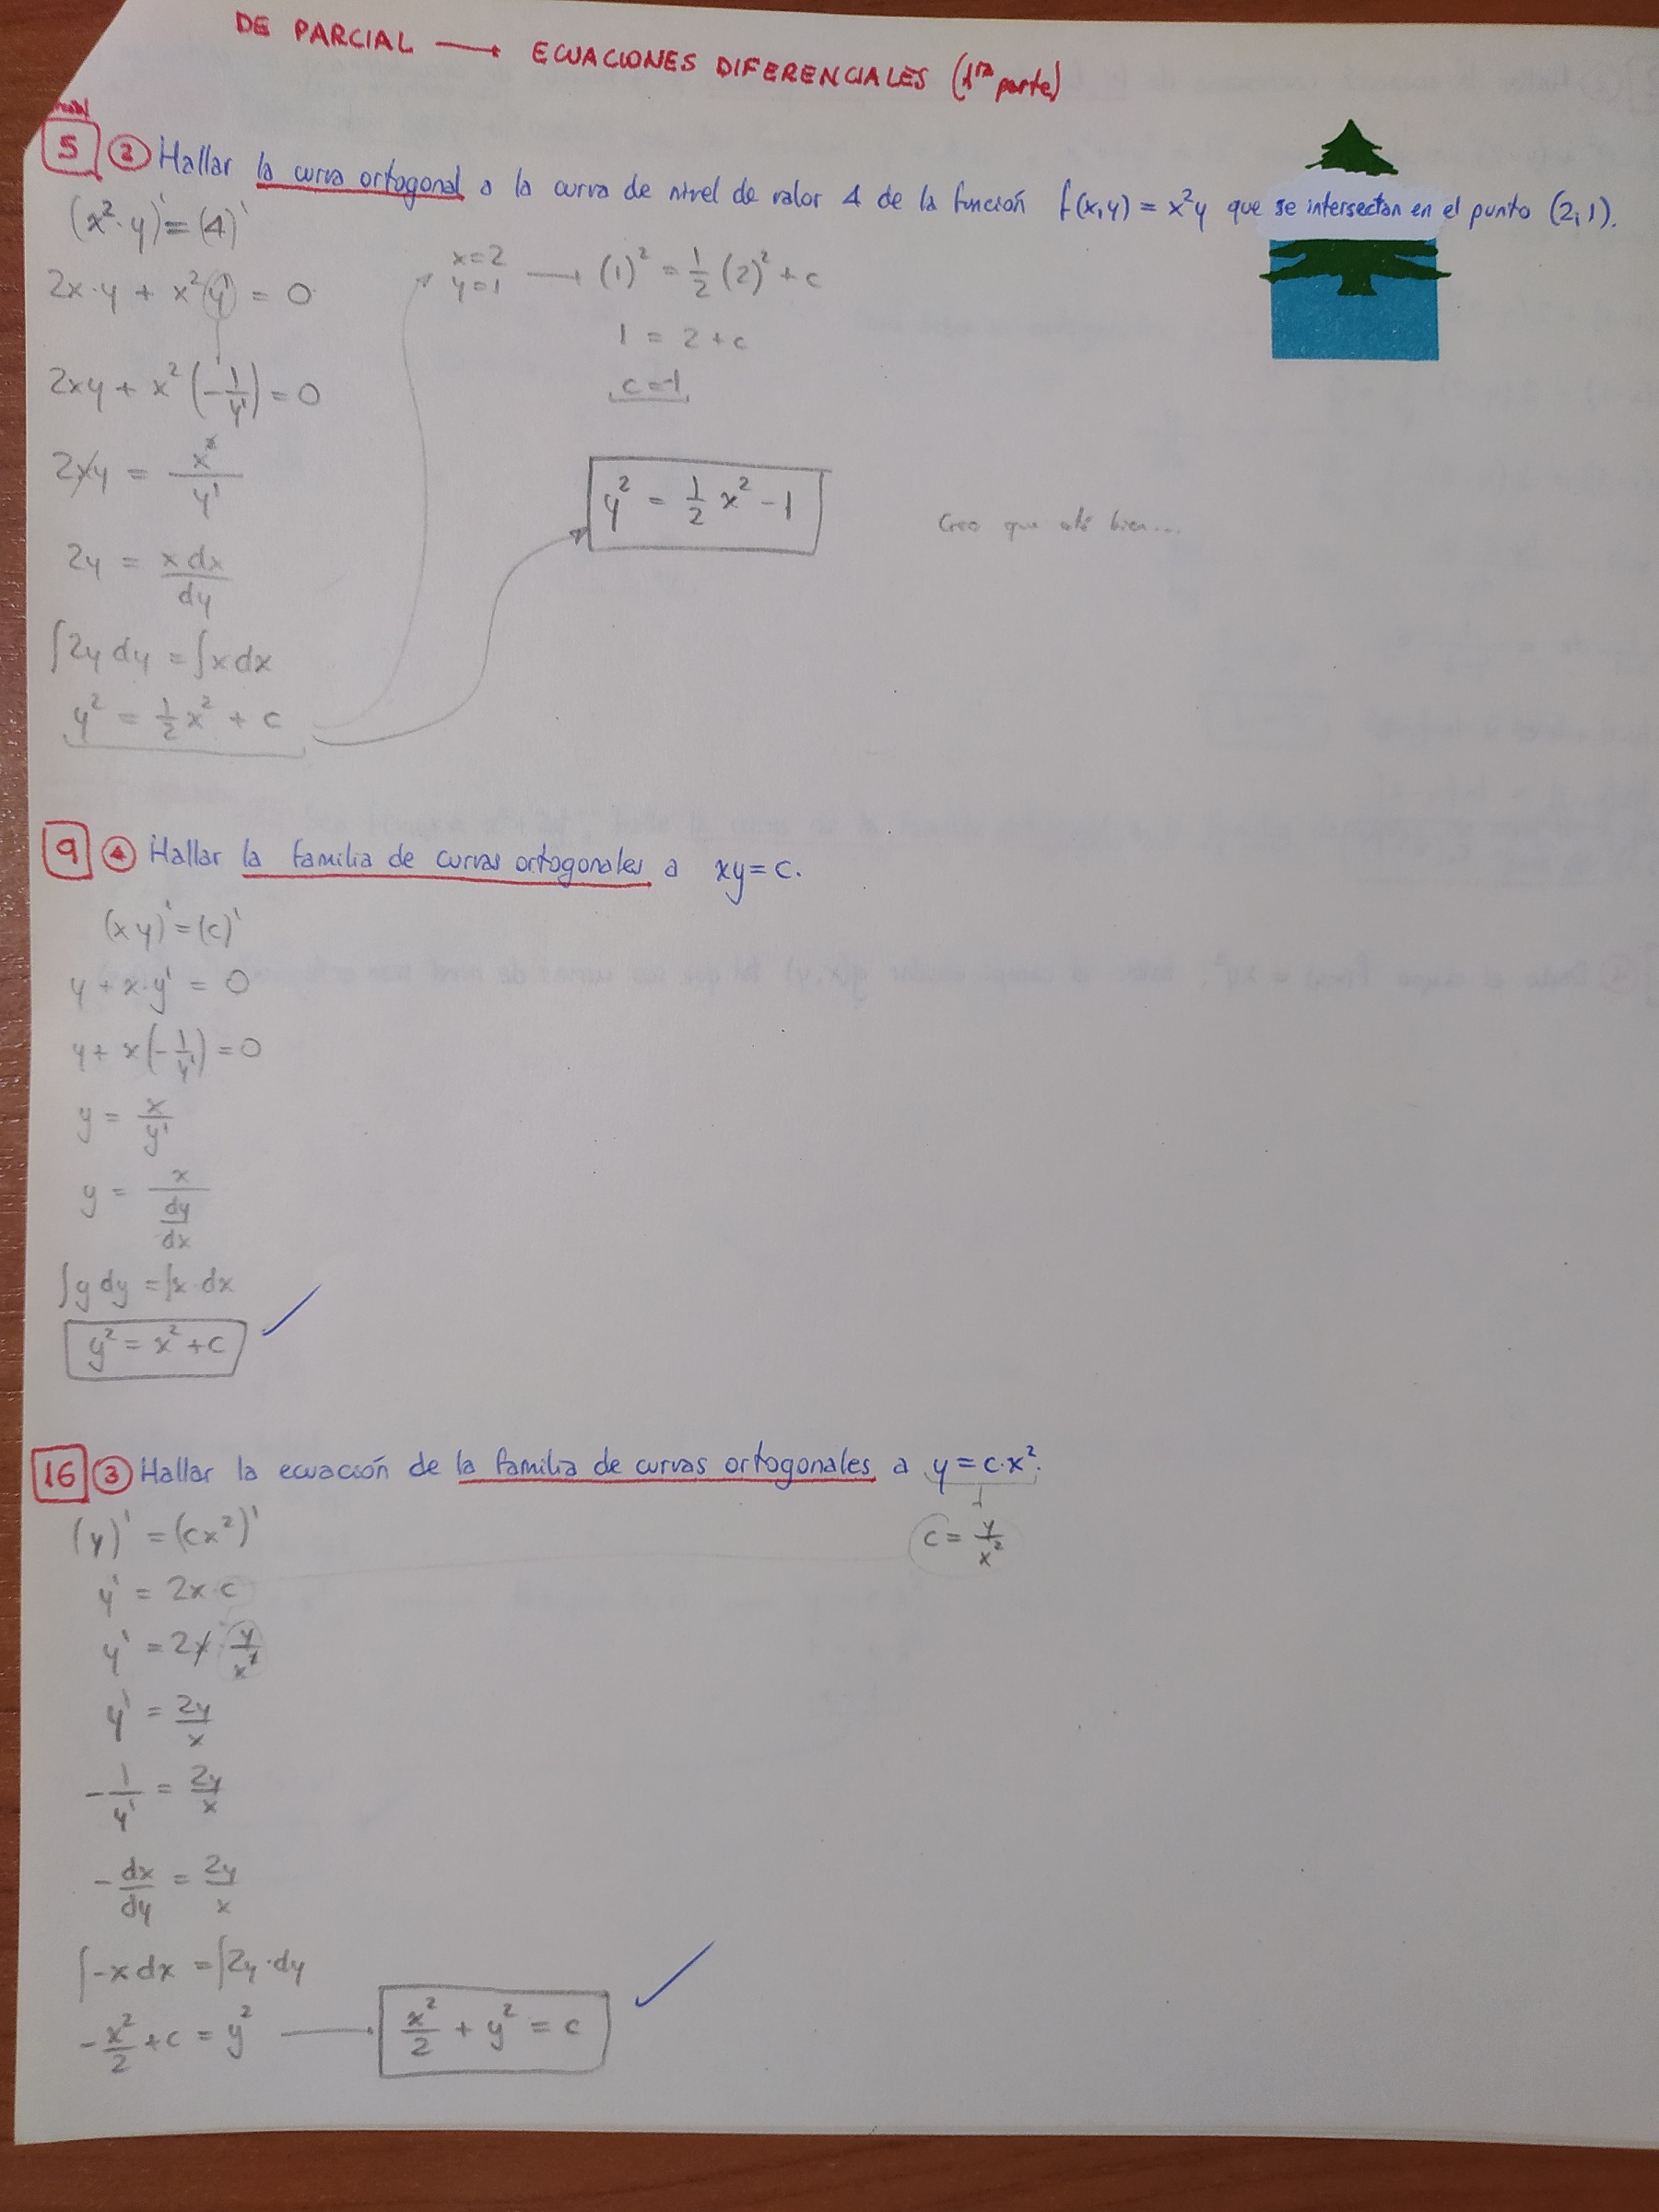 DE PARCIAL → ECUACIONES DIFERENCIALES (1ra parte)
5 ② Hallar la curva ortogonal a la curva de nivel de valor 4 de la función f(x,y) = x²y que se intersectan en el punto (2,1).
(x²·y)' = (4)'
2x·y + x² y' = 0
2xy + x² (-1/y') = 0
2xy = x²/y'
2y = x dx/dy
∫2y dy = ∫x dx
y² = 1/2 x² + c
x=2
y=1 → (1)² = 1/2 (2)² + c
1 = 2 + c
c = -1
y² = 1/2 x² - 1
Creo que está bien...
9 ④ Hallar la familia de curvas ortogonales a xy = c.
(xy)' = (c)'
y + x·y' = 0
y + x(-1/y') = 0
y = x/y'
y = x/(dy/dx)
∫y dy = ∫x·dx
y² = x² + c
16 ③ Hallar la ecuación de la familia de curvas ortogonales a y = c·x².
c = y/x²
(y)' = (cx²)'
y' = 2x·c
y' = 2x·y/x²
y' = 2y/x
-1/y' = 2y/x
-dx/dy = 2y/x
∫-x dx = ∫2y·dy
-x²/2 + c = y² → x²/2 + y² = c